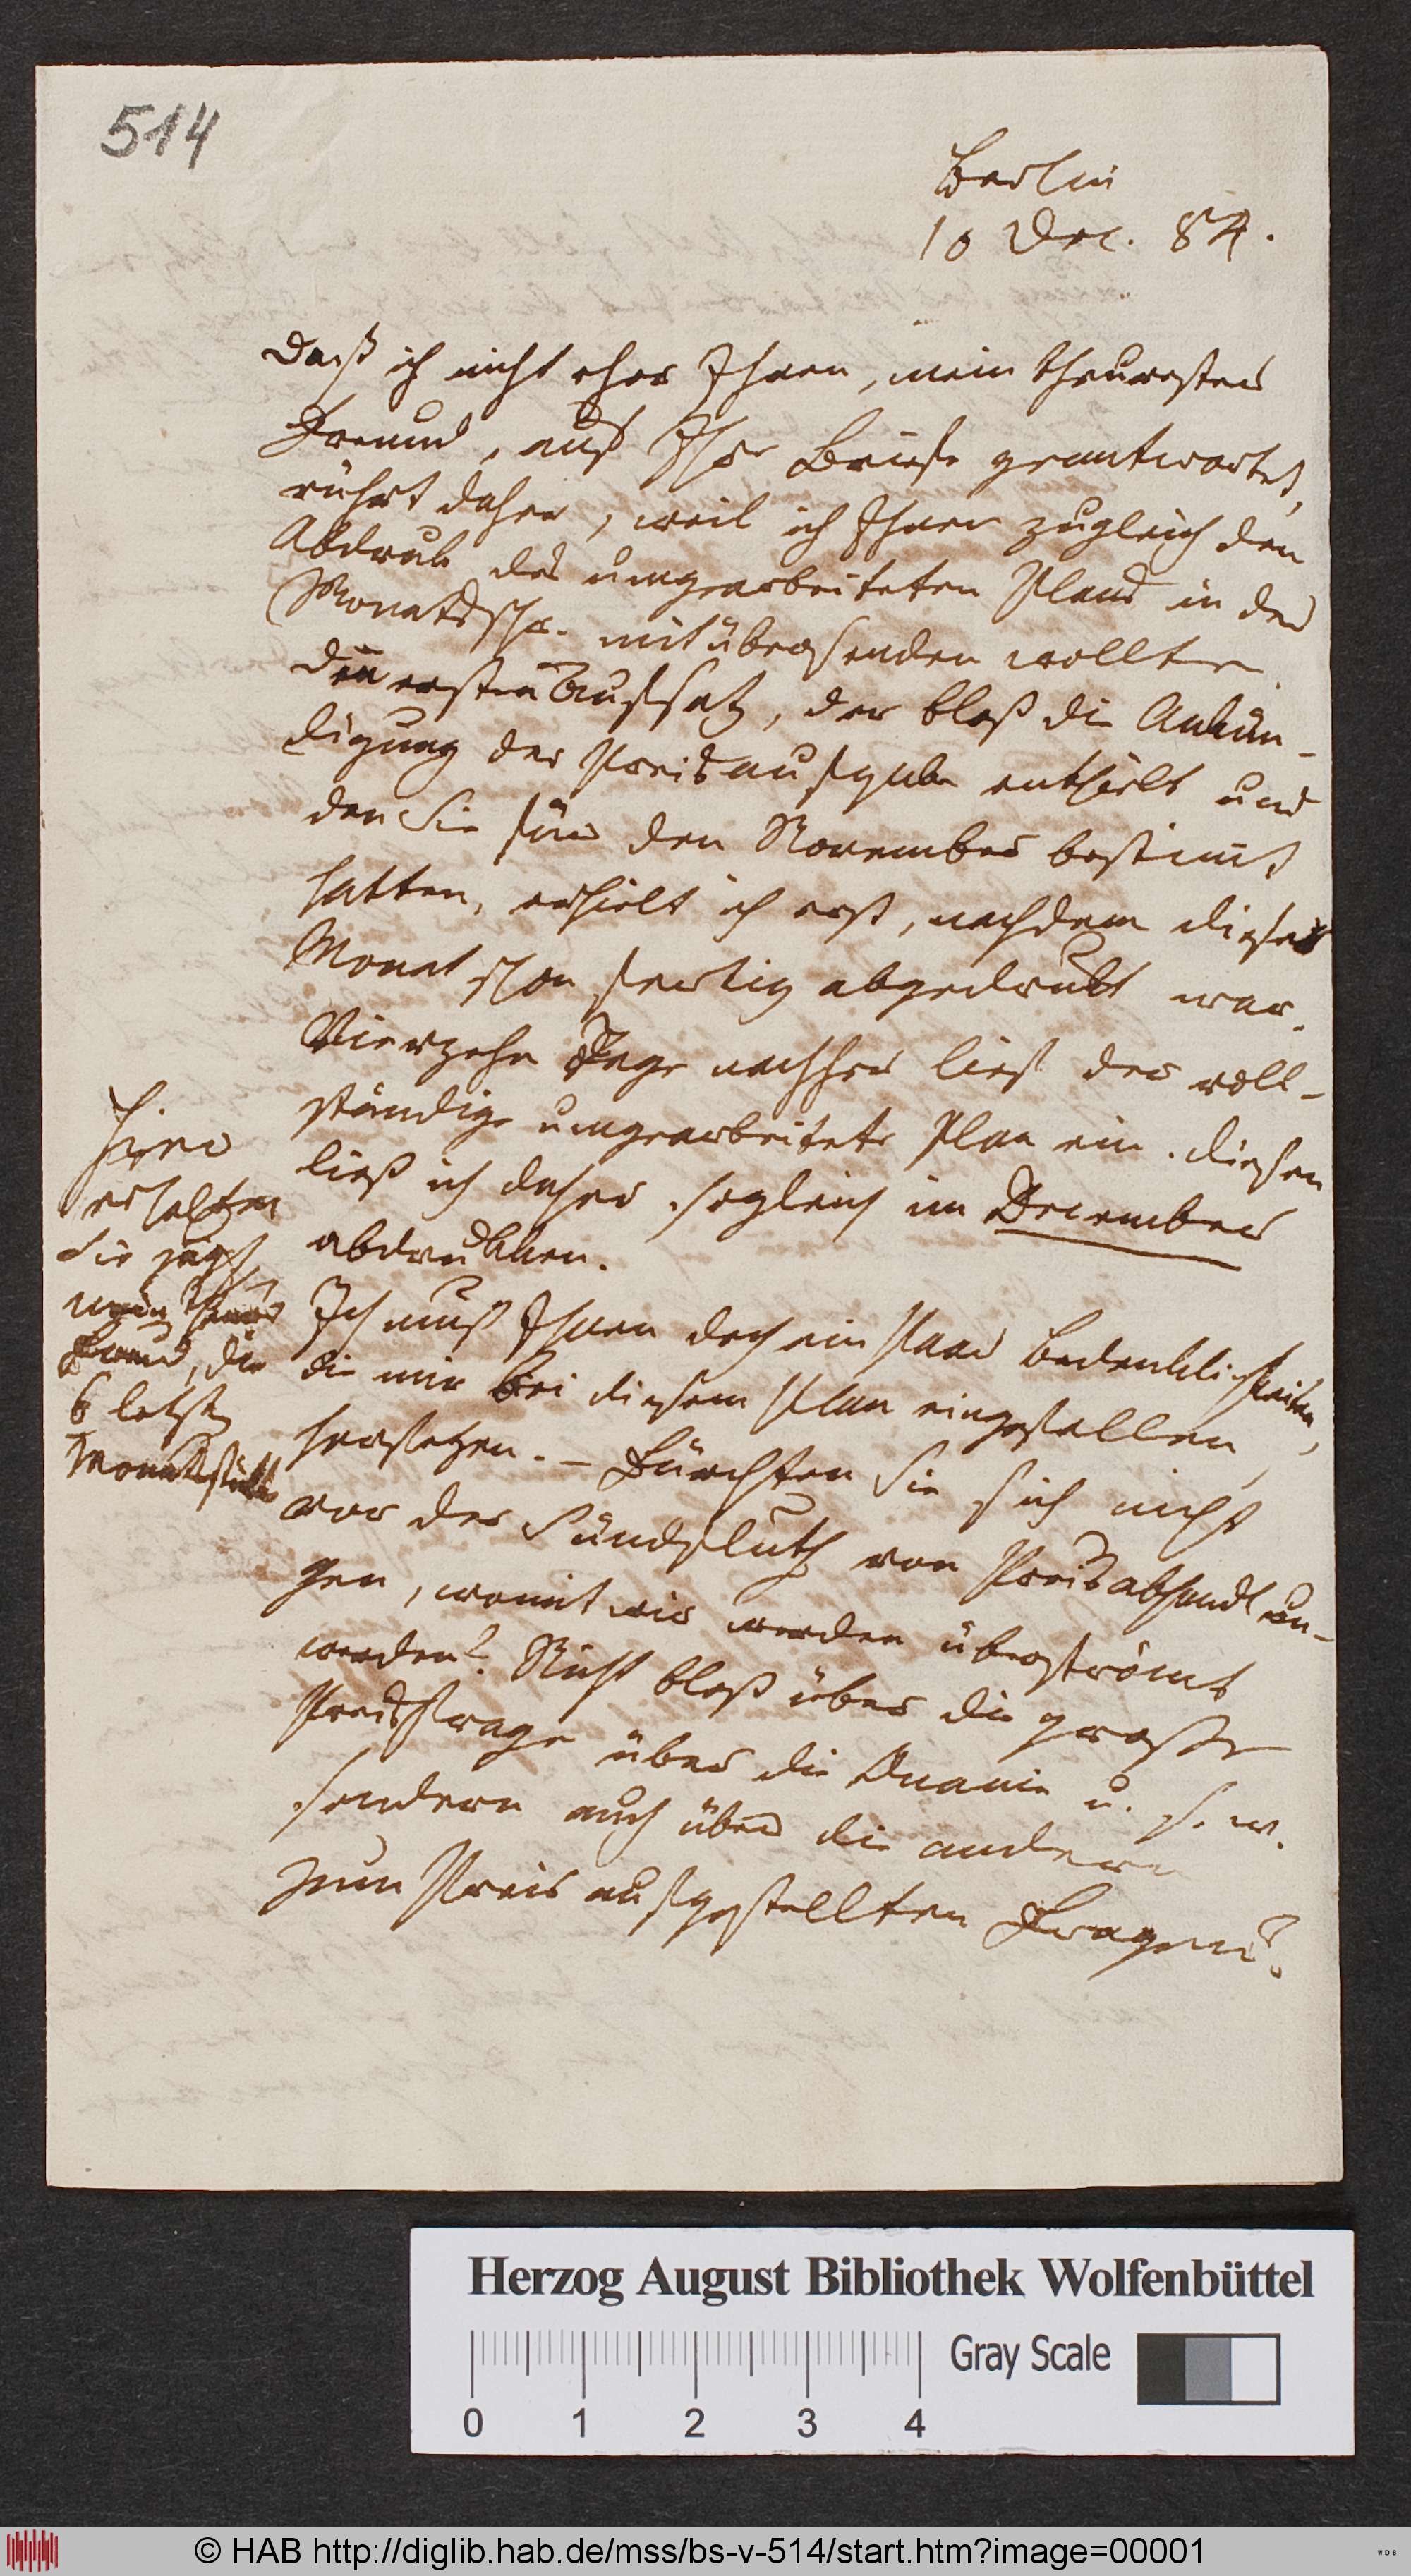 514
Berlin
10 Dec. 84.
Daß ich nicht eher Ihnen, mein theurester
Freund, auf Ihre Briefe geantwortet,
rührt daher, weil ich Ihnen zugleich den
Abdruk des umgearbeiteten Plans in der
Monatsschr. mit übersenden wollte.
Den ersten Aufsatz, der bloß die Ankün-
digung der Preisaufgabe enthielt und
den Sie für den November bestimt
hatten, erhielt ich erst, nachdem dieser
Monat schon fertig abgedrukt war.
Vierzehn Tage nachher lief der voll-
ständige umgearbeitete Plan ein. Diesen
ließ ich daher sogleich im December
abdrukken.
Ich muß Ihnen doch ein Paar Bedenklichkeiten,
die mir bei diesem Plan eingefallen,
hersetzen. – Fürchten Sie sich nicht
vor der Sündfluth von Preisabhandlun-
gen, womit wir werden überströmt
werden? Nicht bloß über die große
Preisfrage über die Onanie u. s. w.
sondern auch über die andern
zum Preis aufgestellten Fragen?
Hier
erhalten
Sie
mein theurer
Freund, die
6 letzten
Monatsstükke
Herzog August Bibliothek Wolfenbüttel
Gray Scale
0 1 2 3 4
© HAB http://diglib.hab.de/mss/bs-v-514/start.htm?image=00001
WDB